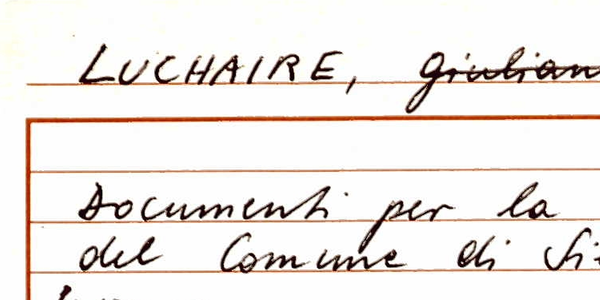 LUCHAIRE, Giulian
Documenti per la
del Comune di Si